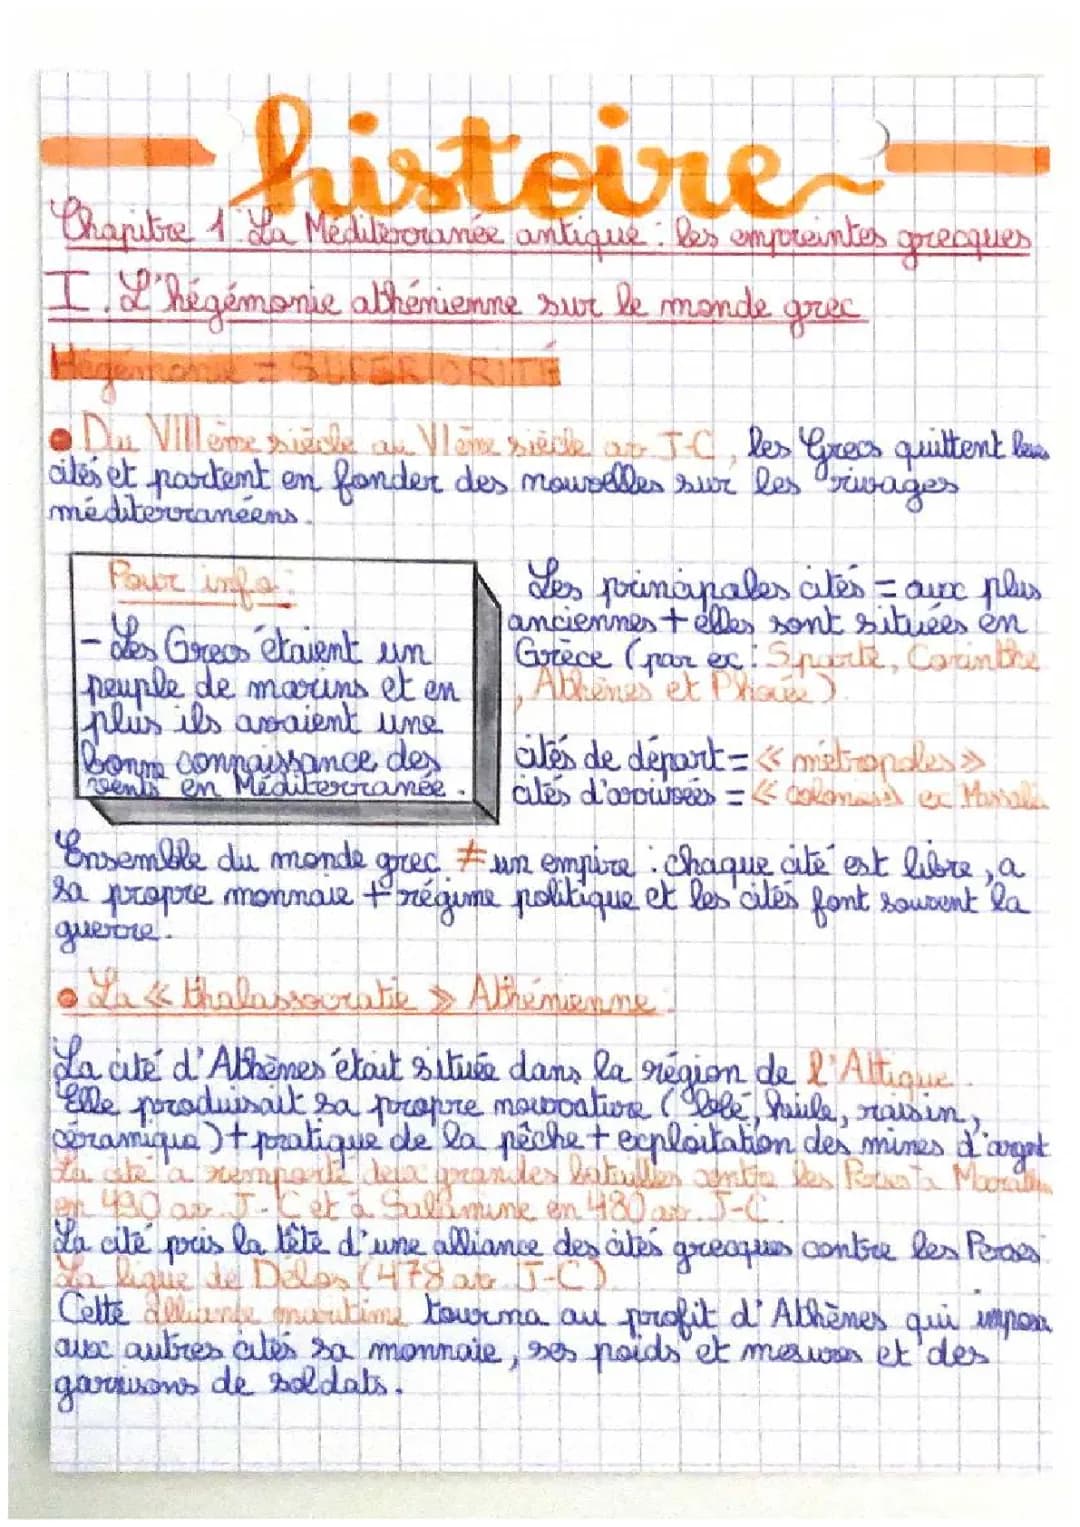 histoire
Chapitre 1: La Méditerranée antique : les empreintes grecques
I. L'hégémonie athénienne sur le monde grec
Hégémonie = SUPERIORITÉ
• Du VIIIème siècle au VIème siècle av J-C, les Grecs quittent leurs
cités et partent en fonder des nouvelles sur les rivages
méditerranéens.
Pour info :
- Les Grecs étaient un
peuple de marins et en
plus ils avaient une
bonne connaissance des
vents en Méditerranée.
Les principales cités = aux plus
anciennes + elles sont situées en
Grèce (par ex : Sparte, Corinthe
, Athènes et Phocée).
cités de départ = « métropoles »
cités d'arrivées = « colonies » ex Massalia
Ensemble du monde grec ≠ un empire : chaque cité est libre, a
sa propre monnaie + régime politique et les cités font souvent la
guerre.
• La « thalassocratie » Athénienne :
La cité d'Athènes était située dans la région de l'Attique.
Elle produisait sa propre nourriture (blé, huile, raisin,
céramique) + pratique de la pêche + exploitation des mines d'argent
La cité a remporté deux grandes batailles contre les Perses à Marathon
en 490 av. J-C et à Salamine en 480 av. J-C.
La cité pris la tête d'une alliance des cités grecques contre les Perses
La ligue de Délos (478 av J-C).
Cette alliance maritime tourna au profit d'Athènes qui imposa
aux autres cités sa monnaie, ses poids et mesures et des
garnisons de soldats.